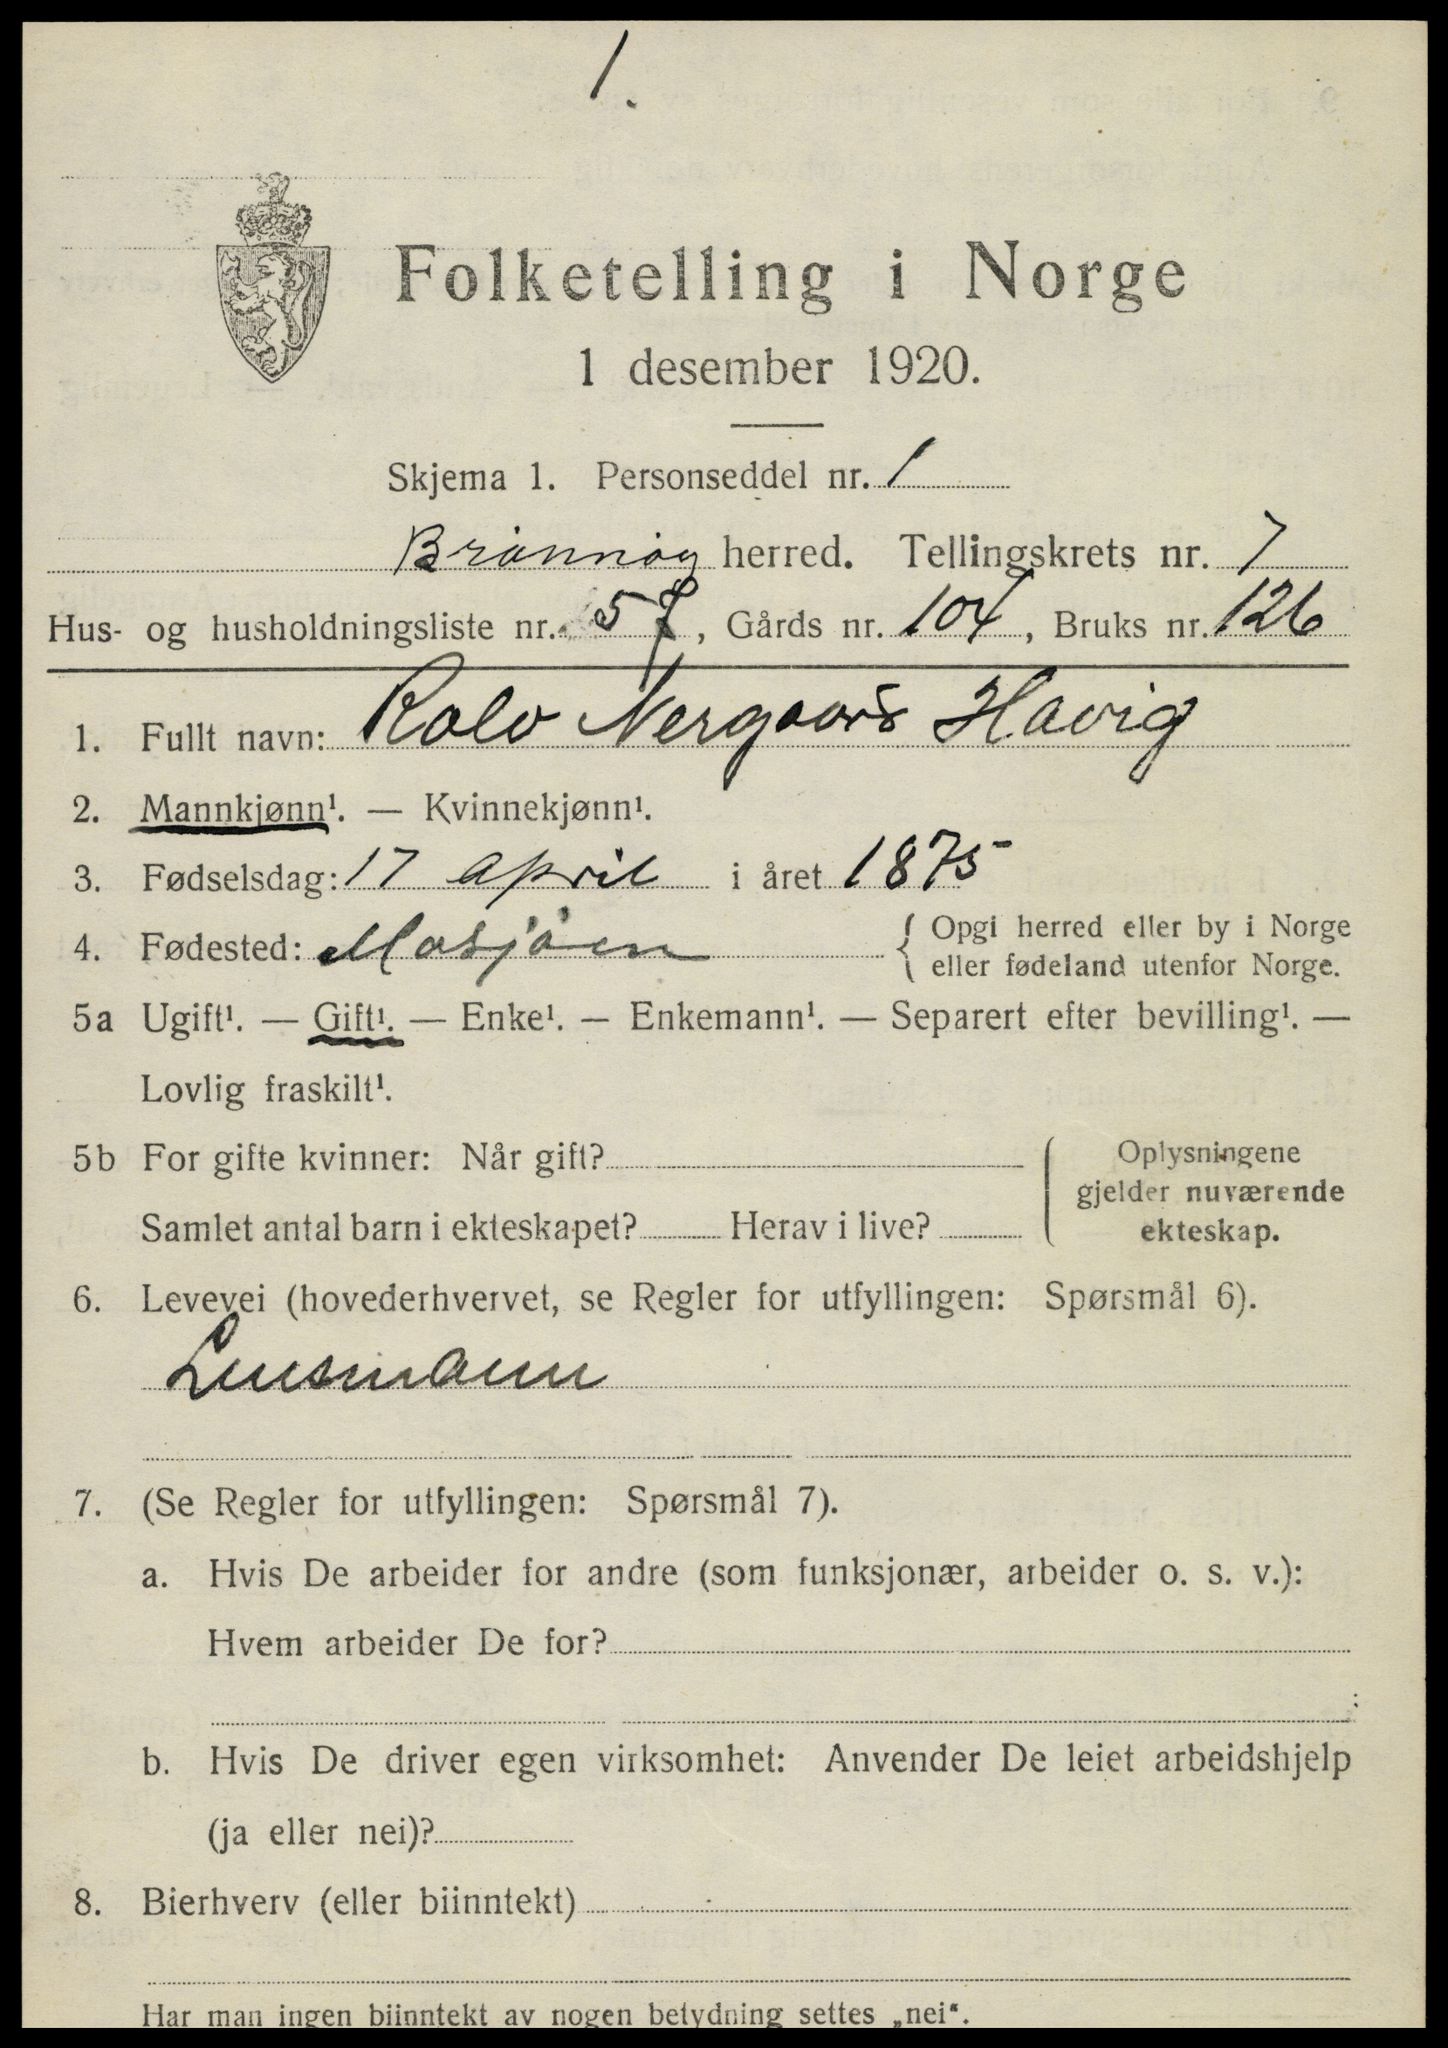 1.
Folketelling i Norge
1 desember 1920.
Skjema 1. Personseddel nr. 1
Brønnøy herred. Tellingskrets nr. 7
Hus- og husholdningsliste nr. 57, Gårds nr. 104, Bruks nr. 126
1. Fullt navn: Rolv Nergaard Havig
2. Mannkjønn¹. — Kvinnekjønn¹.
3. Fødselsdag: 17 april i året 1875
4. Fødested: Mosjøen { Opgi herred eller by i Norge
eller fødeland utenfor Norge.
5a Ugift¹. — Gift¹. — Enke¹. — Enkemann¹. — Separert efter bevilling¹. —
Lovlig fraskilt¹.
5b For gifte kvinner: Når gift?
Samlet antal barn i ekteskapet? Herav i live?
Oplysningene
gjelder nuværende
ekteskap.
6. Levevei (hovederhvervet, se Regler for utfyllingen: Spørsmål 6).
Lensmann
7. (Se Regler for utfyllingen: Spørsmål 7).
a. Hvis De arbeider for andre (som funksjonær, arbeider o. s. v.):
Hvem arbeider De for?
b. Hvis De driver egen virksomhet: Anvender De leiet arbeidshjelp
(ja eller nei)?
8. Bierhverv (eller biinntekt)
Har man ingen biinntekt av nogen betydning settes „nei“.